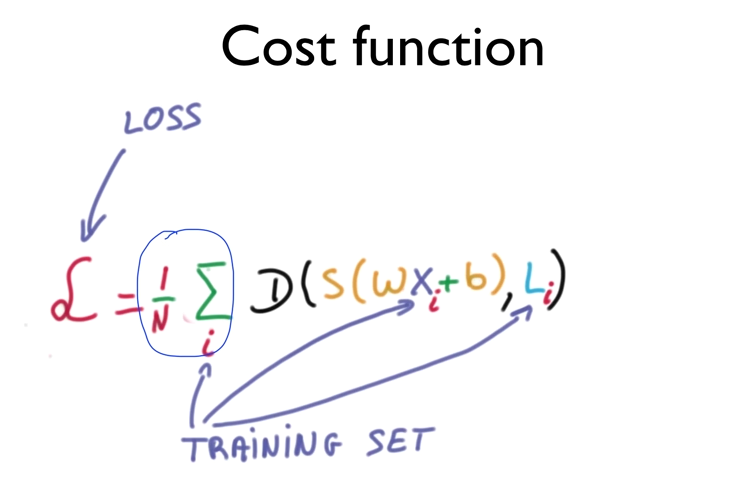 Cost function
LOSS
ℒ = 1/N Σ D(S(WXi+b), Li)
i
TRAINING SET